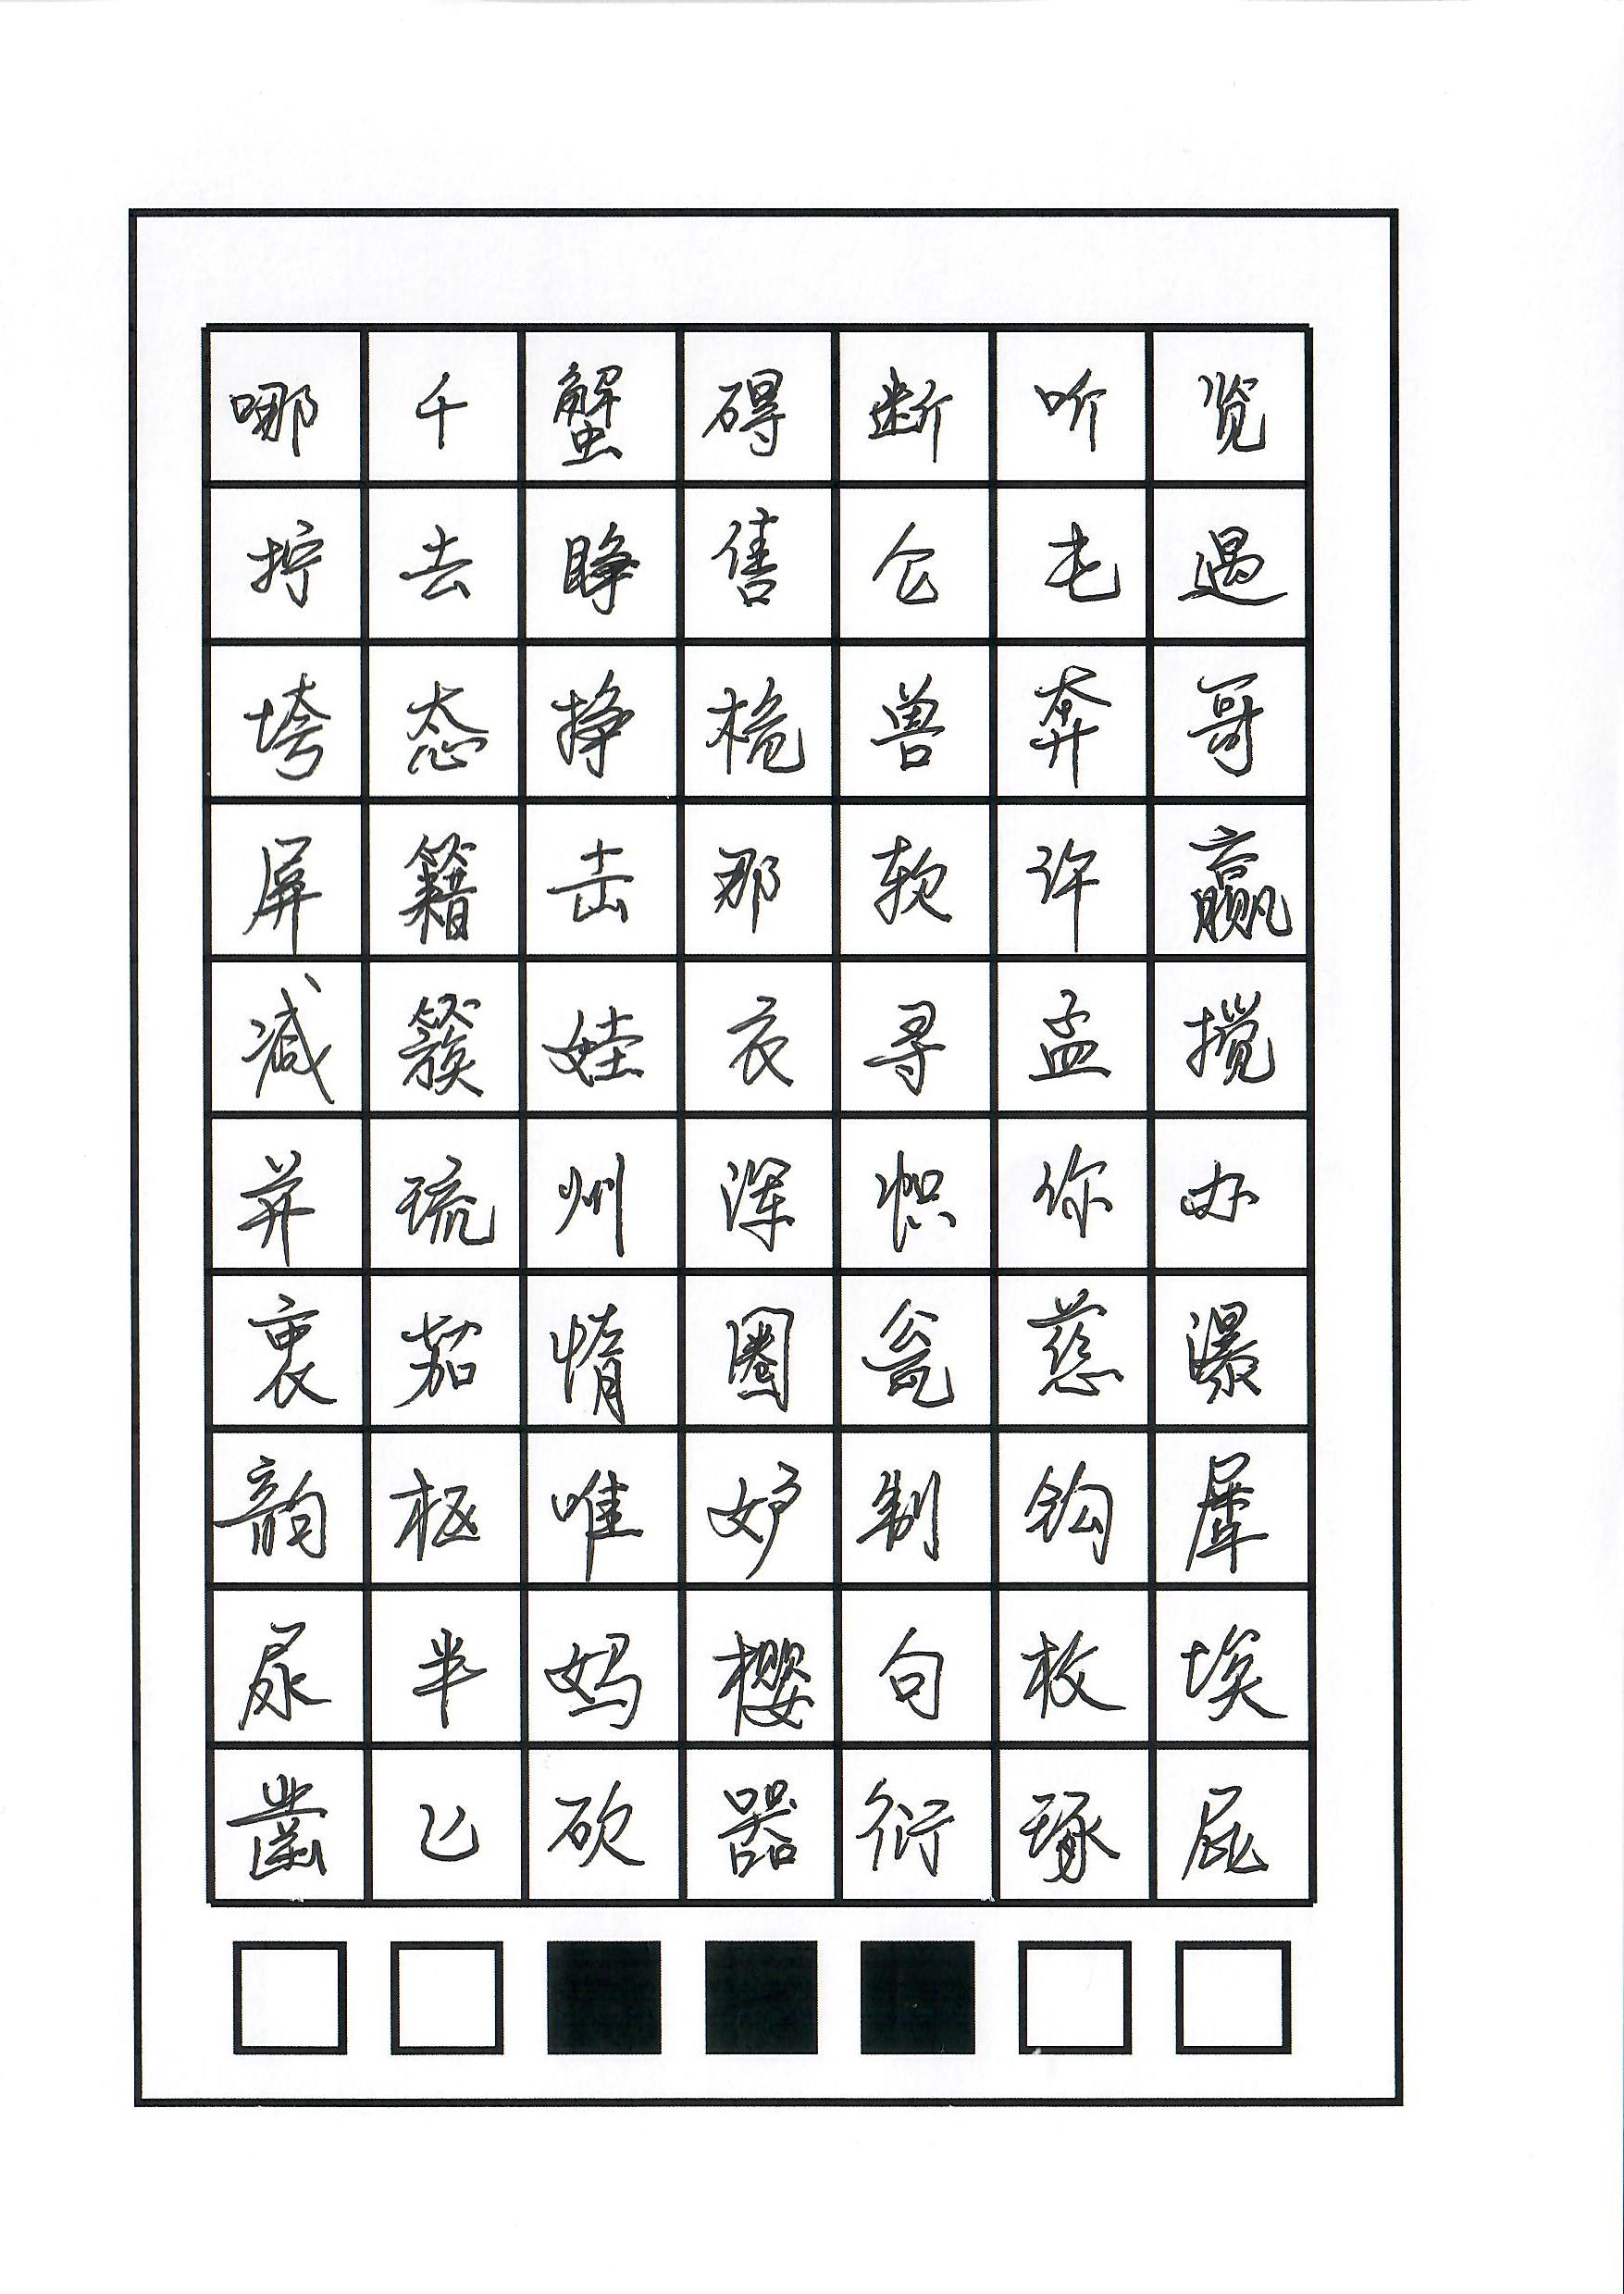 哪千蟹碍断听览
拧去睁售仑屯遇
垮态挣桅兽奔哥
屏籍击那软许赢
减簇娃衣寻孟搅
并琉州深帜你办
裹茄惰圈瓮慈瀑
韵枢唯妒制钩犀
尿半妈樱句枚埃
齿飞砍器衍琢屁